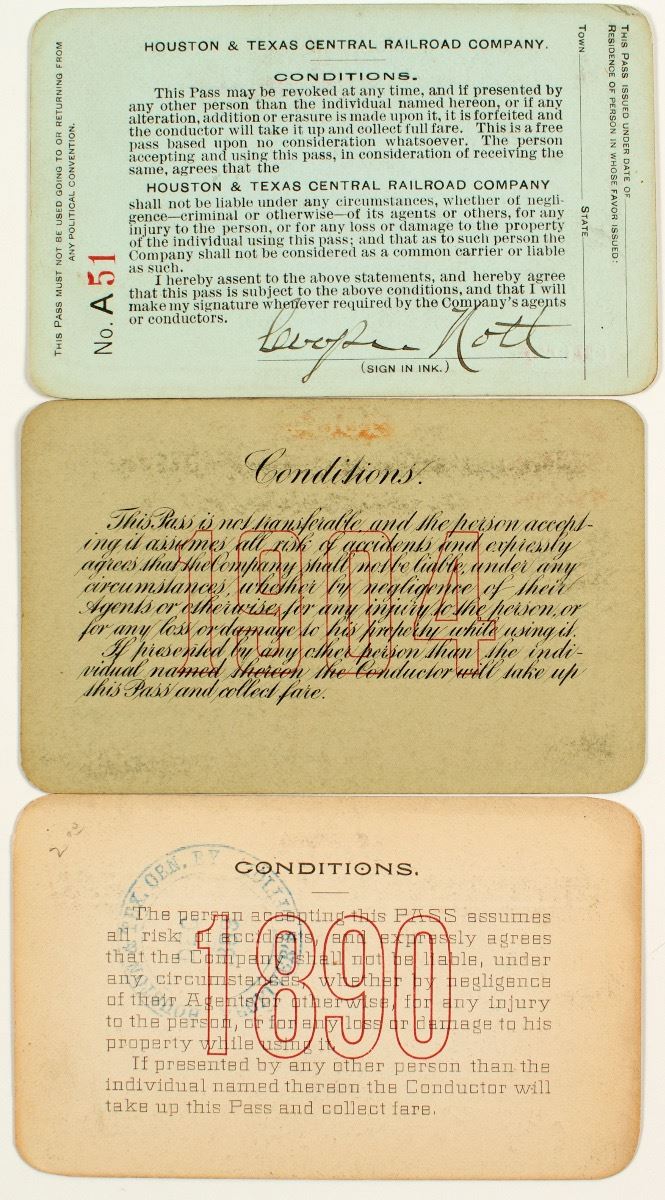 HOUSTON & TEXAS CENTRAL RAILROAD COMPANY.
CONDITIONS.
This Pass may be revoked at any time, and if presented by
any other person than the individual named hereon, or if any
alteration, addition or erasure is made upon it, it is forfeited and
the conductor will take it up and collect full fare. This is a free
pass based upon no consideration whatsoever. The person
accepting and using this pass, in consideration of receiving the
same, agrees that the
HOUSTON & TEXAS CENTRAL RAILROAD COMPANY
shall not be liable under any circumstances, whether of negli-
gence—criminal or otherwise—of its agents or others, for any
injury to the person, or for any loss or damage to the property
of the individual using this pass; and that as to such person the
Company shall not be considered as a common carrier or liable
as such.
I hereby assent to the above statements, and hereby agree
that this pass is subject to the above conditions, and that I will
make my signature whenever required by the Company's agents
or conductors.
Nott
(SIGN IN INK.)
THIS PASS MUST NOT BE USED GOING TO OR RETURNING FROM
ANY POLITICAL CONVENTION.
No. A 51
THIS PASS ISSUED UNDER DATE OF
RESIDENCE OF PERSON IN WHOSE FAVOR ISSUED:
TOWN STATE
Conditions.
This Pass is not transferable and the person accept-
ing it assumes all risk of accidents and expressly
agrees that the Company shall not be liable, under any
circumstances, whether by negligence of their
Agents or otherwise, for any injury to the person, or
for any loss or damage to his property while using it.
If presented by any other person than the indi-
vidual named thereon the Conductor will take up
this Pass and collect fare.
1904
CONDITIONS.
The person accepting this PASS assumes
all risk of accidents, and expressly agrees
that the Company shall not be liable, under
any circumstances, whether by negligence
of their Agents or otherwise, for any injury
to the person, or for any loss or damage to his
property while using it.
If presented by any other person than the
individual named thereon the Conductor will
take up this Pass and collect fare.
1890